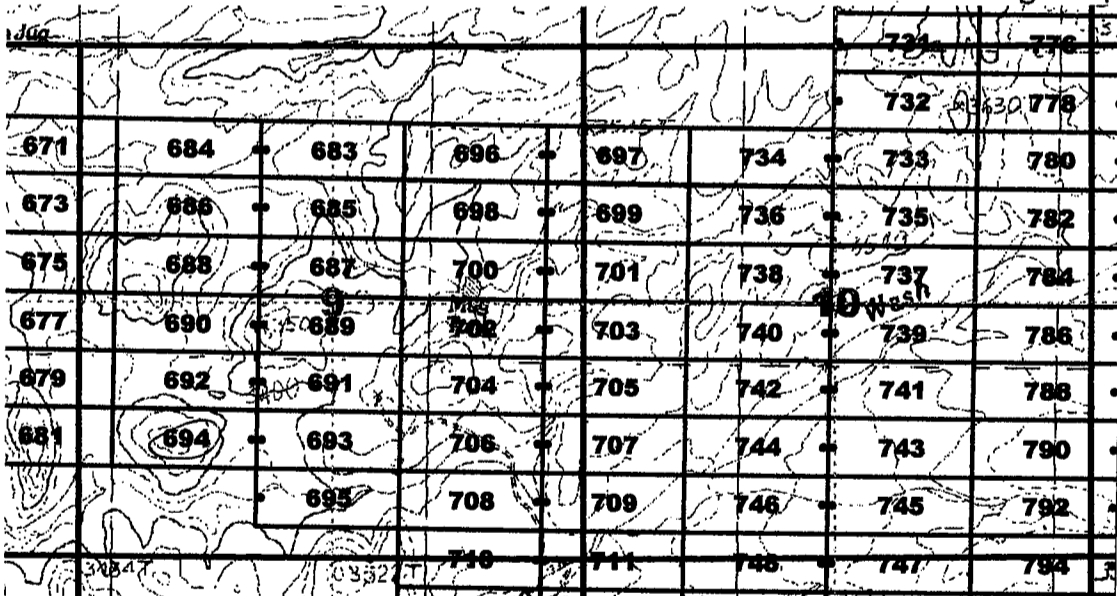 Jug
731 776
732 3630 778
671 684 683 696 697 734 733 780
673 686 685 698 699 736 735 782
675 688 687 700 701 738 737 784
9 10 Wash
677 690 689 702 703 740 739 786
679 692 691 704 705 742 741 788
681 694 693 706 707 744 743 790
695 708 709 746 745 792
710 711 748 747 794
3484T 3322T